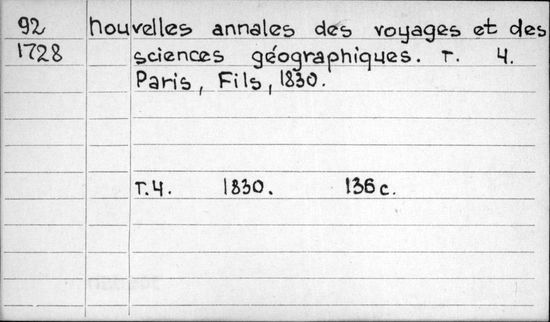 92 Nouvelles annales des voyages et des
1728 sciences géographiques. T. 4.
Paris, Fils, 1830.
T.4. 1830. 136 c.